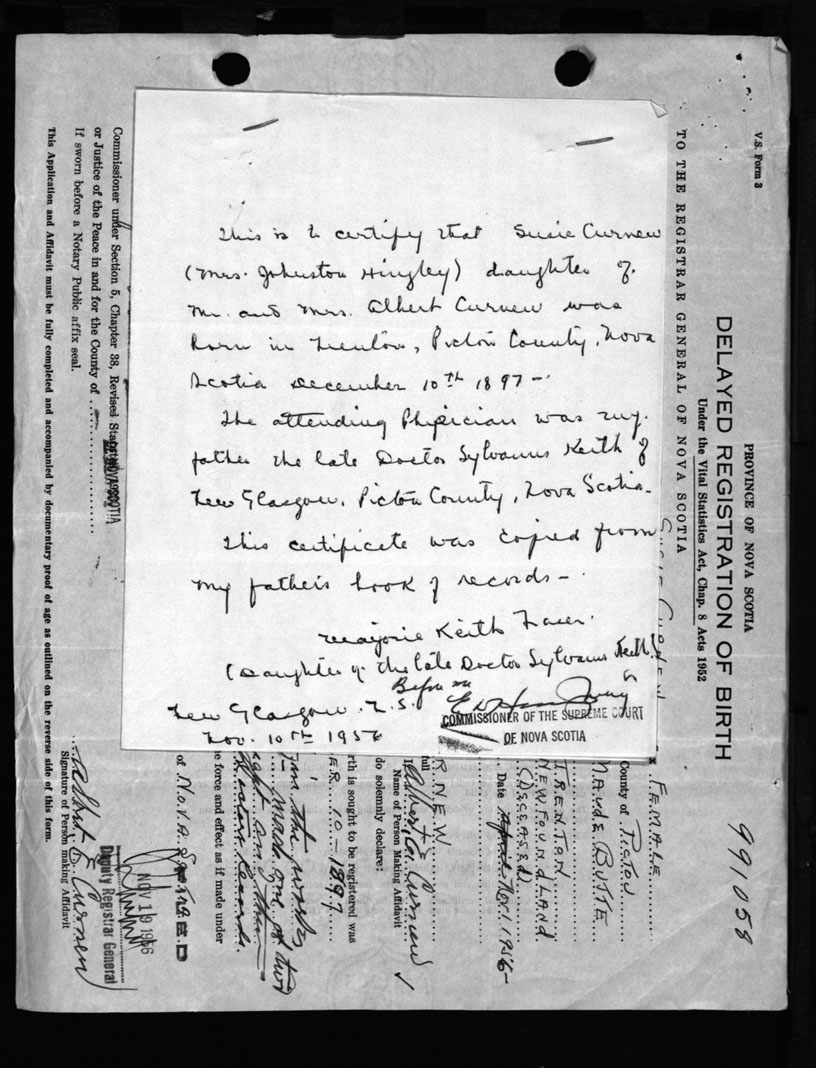 This is to certify that Susie Curnew
(Mrs. Johnston Hingley) daughter of
Mr. and Mrs. Albert Curnew was
born in Trenton, Pictou County, Nova
Scotia December 10th 1897 -
The attending Physician was my
father the late Doctor Sylvanus Keith of
New Glasgow, Pictou County, Nova Scotia -
This certificate was copied from
my father's book of records -
Marjorie Keith Fraser.
(Daughter of the late Doctor Sylvanus Keith)
Before me
New Glasgow. N.S.
COMMISSIONER OF THE SUPREME COURT
OF NOVA SCOTIA
Nov. 10th 1956
V.S. Form 3
PROVINCE OF NOVA SCOTIA
DELAYED REGISTRATION OF BIRTH
Under the Vital Statistics Act, Chap. 8 Acts 1952
TO THE REGISTRAR GENERAL OF NOVA SCOTIA
991058
FEMALE
County of PICTOU
MAUDE BUTTE
TRENTON
NEWFOUNDLAND
(DECEASED)
Date Nov. 1956
RNEW
full
Name of Person Making Affidavit
do solemnly declare:
rth is sought to be registered was
ER 10 - 1897
made one of two
e force and effect as if made under
of NOVA
NOV 19 1956
Deputy Registrar General
Albert E. Curnew
Signature of Person making Affidavit
Commissioner under Section 5, Chapter 38, Revised
or Justice of the Peace in and for the County of
If sworn before a Notary Public affix seal.
This Application and Affidavit must be fully completed and accompanied by documentary proof of age as outlined on the reverse side of this form.